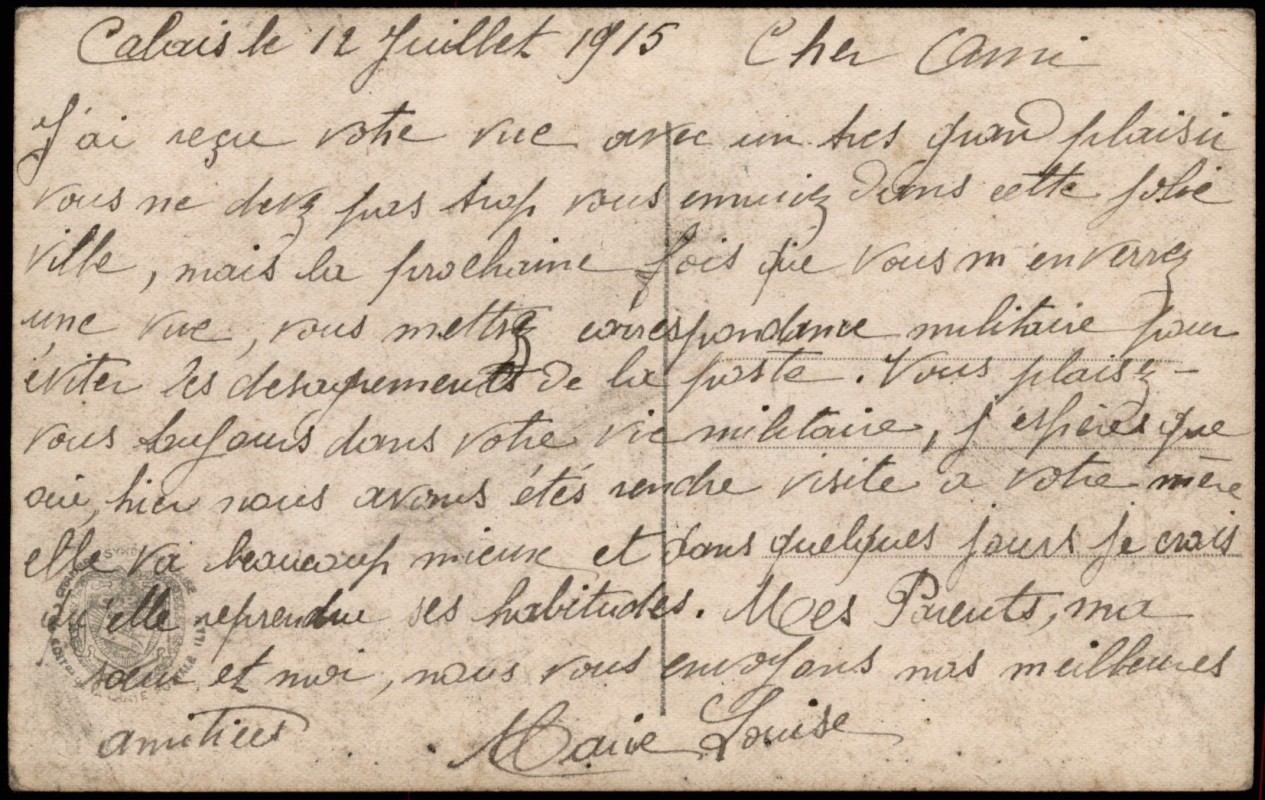 Calais le 12 Juillet 1915 Cher Ami
J'ai reçu votre vue avec un tres grand plaisir
vous ne devez pas trop vous ennuiez dans cette jolie
ville, mais la prochaine fois que vous m'enverrez
une vue, vous mettrez correspondance militaire pour
éviter les desagrements de la poste. Vous plaisez-
vous toujours dans votre vie militaire, j'espères que
oui, hier nous avons étés rendre visite a votre mère
elle va beaucoup mieux et dans quelques jours je crois
qu'elle reprendra ses habitudes. Mes Parents, ma
soeur et moi, nous vous envoyons nos meilleures
amitiées Marie Louise